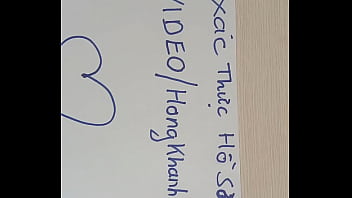 xác Thực Hồ Sơ
VIDEO/HongKhanh